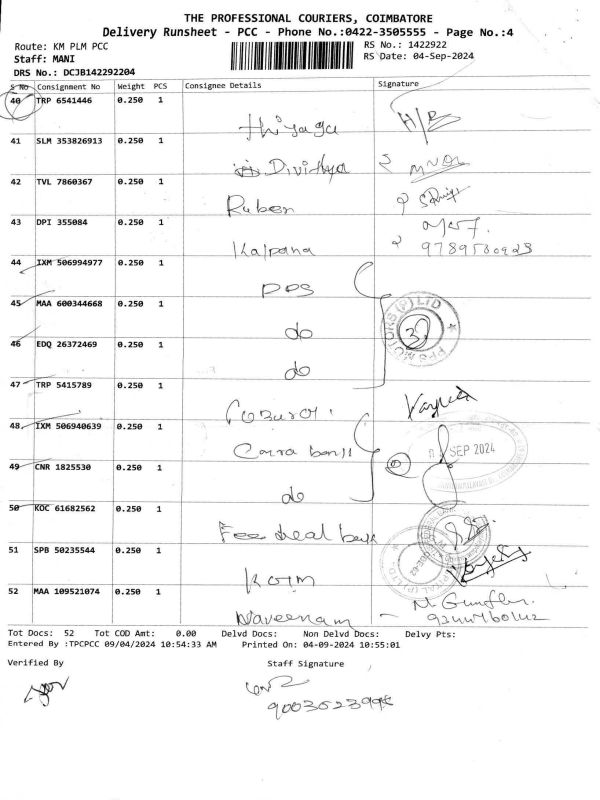 THE PROFESSIONAL COURIERS, COIMBATORE
Delivery Runsheet - PCC - Phone No.:0422-3505555 - Page No.:4
Route: KM PLM PCC
RS No.: 1422922
Staff: MANI
RS Date: 04-Sep-2024
DRS No.: DCJB142292204
S No Consignment No Weight PCS Consignee Details Signature
40 TRP 6541446 0.250 1
thiyagu
41 SLM 353826913 0.250 1
Divithya
42 TVL 7860367 0.250 1
Ruben
43 DPI 355084 0.250 1
Kalpana
44 IXM 506994977 0.250 1
45 MAA 600344668 0.250 1
do
46 EDQ 26372469 0.250 1
do
47 TRP 5415789 0.250 1
48 IXM 506940639 0.250 1
SEP 2024
49 CNR 1825530 0.250 1
do
50 KOC 61682562 0.250 1
51 SPB 50235544 0.250 1
52 MAA 109521074 0.250 1
Naveenam
Tot Docs: 52 Tot COD Amt: 0.00 Delvd Docs: Non Delvd Docs: Delvy Pts:
Entered By :TPCPCC 09/04/2024 10:54:33 AM Printed On: 04-09-2024 10:55:01
Verified By Staff Signature